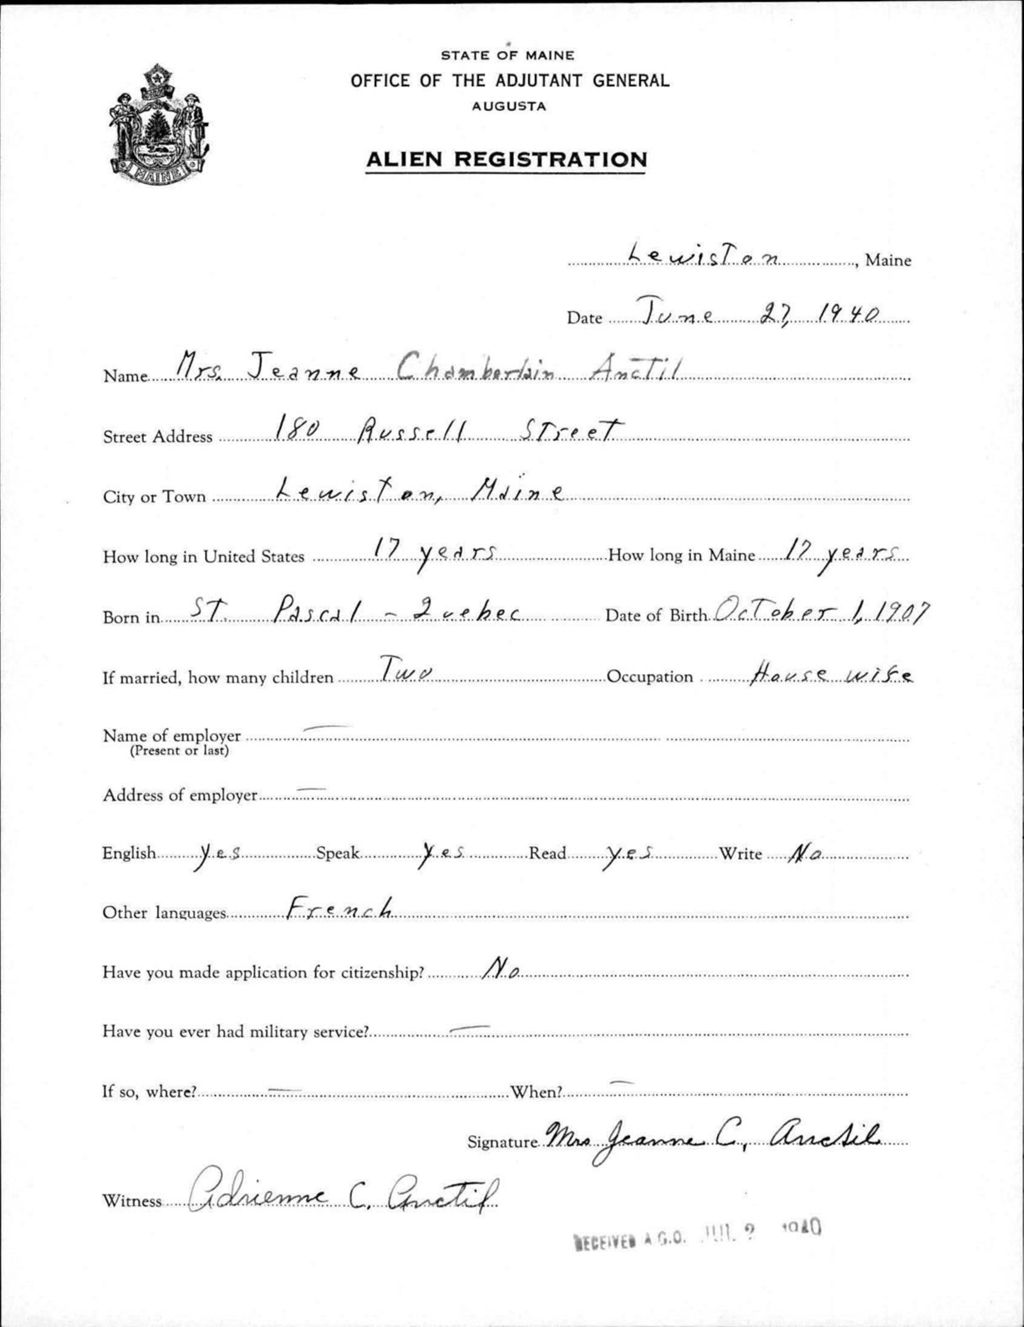 STATE OF MAINE
OFFICE OF THE ADJUTANT GENERAL
AUGUSTA
ALIEN REGISTRATION
MAINE
Lewiston, Maine
Date June 27, 1940
Name Mrs. Jeanne Chamberlain Anctil
Street Address 180 Russell Street
City or Town Lewiston, Maine
How long in United States 17 years How long in Maine 17 years
Born in St. Pascal - Quebec Date of Birth October 1, 1907
If married, how many children Two Occupation House wife
Name of employer —
(Present or last)
Address of employer —
English Yes Speak Yes Read yes Write No
Other languages French
Have you made application for citizenship? No
Have you ever had military service? —
If so, where? — When? —
Signature Mrs Jeanne C, Anctil
Witness Adrienne C. Anctil
RECEIVED A.G.O. JUL 2 1940